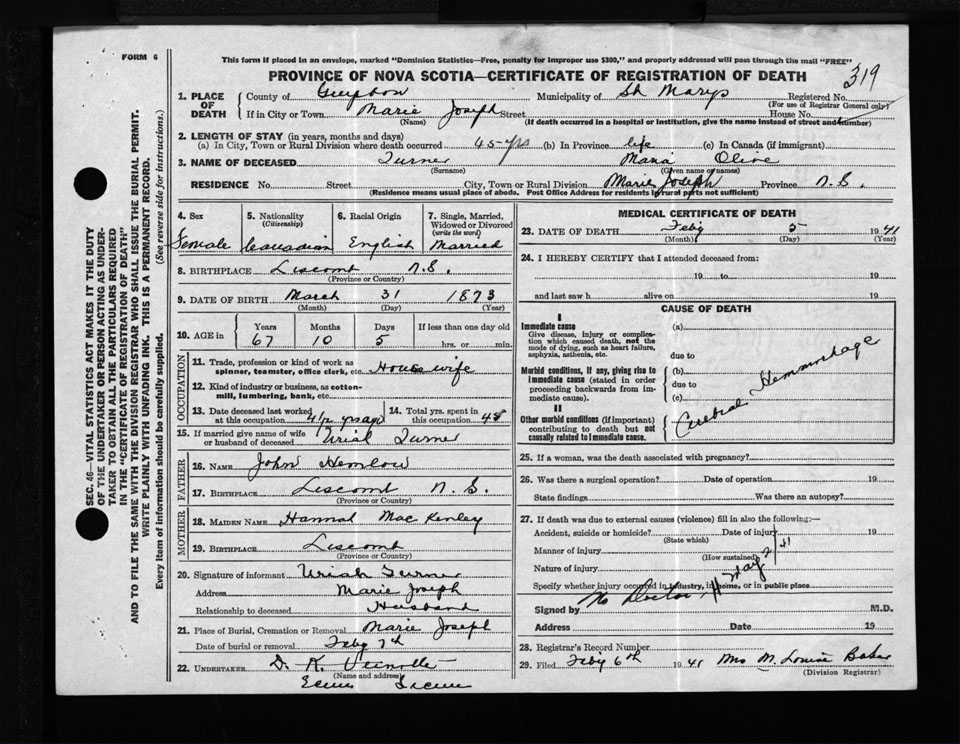 FORM 6
This form if placed in an envelope, marked "Dominion Statistics—Free, penalty for improper use $300," and properly addressed will pass through the mail "FREE"
PROVINCE OF NOVA SCOTIA—CERTIFICATE OF REGISTRATION OF DEATH
319
1. PLACE OF DEATH
County of Municipality of St Marys Registered No.
(For use of Registrar General only)
If in City or Town Marie Joseph Street House No.
(Name) (If death occurred in a hospital or institution, give the name instead of street and number)
2. LENGTH OF STAY (in years, months and days)
(a) In City, Town or Rural Division where death occurred 45-yrs (b) In Province life (c) In Canada (if immigrant)
3. NAME OF DECEASED Turner Maria Olive
(Surname) (Given name or names)
RESIDENCE No. Street City, Town or Rural Division Marie Joseph Province N.S.
(Residence means usual place of abode. Post Office Address for residents in rural parts not sufficient)
4. Sex
Female
5. Nationality
(Citizenship)
Canadian
6. Racial Origin
English
7. Single, Married, Widowed or Divorced
(write the word)
Married
8. BIRTHPLACE Liscomb N.S.
(Province or Country)
9. DATE OF BIRTH March 31 1873
(Month) (Day) (Year)
10. AGE in
Years Months Days If less than one day old
67 10 5 hrs. or min.
OCCUPATION
11. Trade, profession or kind of work as
spinner, teamster, office clerk, etc. House wife
12. Kind of industry or business, as cotton-
mill, lumbering, bank, etc.
13. Date deceased last worked
at this occupation
14. Total yrs. spent in
this occupation 48
15. If married give name of wife
or husband of deceased Uriah Turner
FATHER
16. NAME John Hemlow
17. BIRTHPLACE Liscomb N.S.
(Province or Country)
MOTHER
18. MAIDEN NAME Hannah MacKenley
19. BIRTHPLACE Liscomb
(Province or Country)
20. Signature of informant Uriah Turner
Address Marie Joseph
Relationship to deceased Husband
21. Place of Burial, Cremation or Removal Marie Joseph
Date of burial or removal Feby 7th
22. UNDERTAKER D. K.
(Name and address)
Ecum Secum
MEDICAL CERTIFICATE OF DEATH
23. DATE OF DEATH Feby 5 1941
(Month) (Day) (Year)
24. I HEREBY CERTIFY that I attended deceased from:
19 to 19
and last saw h alive on 19
CAUSE OF DEATH
I
Immediate cause
Give disease, injury or complica-
tion which caused death, not the
mode of dying, such as heart failure,
asphyxia, asthenia, etc.
Morbid conditions, if any, giving rise to
immediate cause (stated in order
proceeding backwards from im-
mediate cause).
II
Other morbid conditions (if important)
contributing to death but not
causally related to immediate cause.
(a)
due to
(b)
due to
(c)
Cerebral Hemmorhage
25. If a woman, was the death associated with pregnancy?
26. Was there a surgical operation? Date of operation 19
State findings Was there an autopsy?
27. If death was due to external causes (violence) fill in also the following:—
Accident, suicide or homicide? Date of injury 19
(State which)
Manner of injury
(How sustained)
Nature of injury
Specify whether injury occurred in industry, in home, or in public place
Signed by No Doctor M.D.
Address Date 19
28. Registrar's Record Number
29. Filed Feby 6th 1941 Mrs M. Louise Baker
(Division Registrar)
SEC. 46—VITAL STATISTICS ACT MAKES IT THE DUTY
OF THE UNDERTAKER OR PERSON ACTING AS UNDER-
TAKER TO OBTAIN ALL THE PARTICULARS REQUIRED
IN THE "CERTIFICATE OF REGISTRATION OF DEATH"
AND TO FILE THE SAME WITH THE DIVISION REGISTRAR WHO SHALL ISSUE THE BURIAL PERMIT.
WRITE PLAINLY WITH UNFADING INK. THIS IS A PERMANENT RECORD.
Every item of information should be carefully supplied. (See reverse side for instructions.)